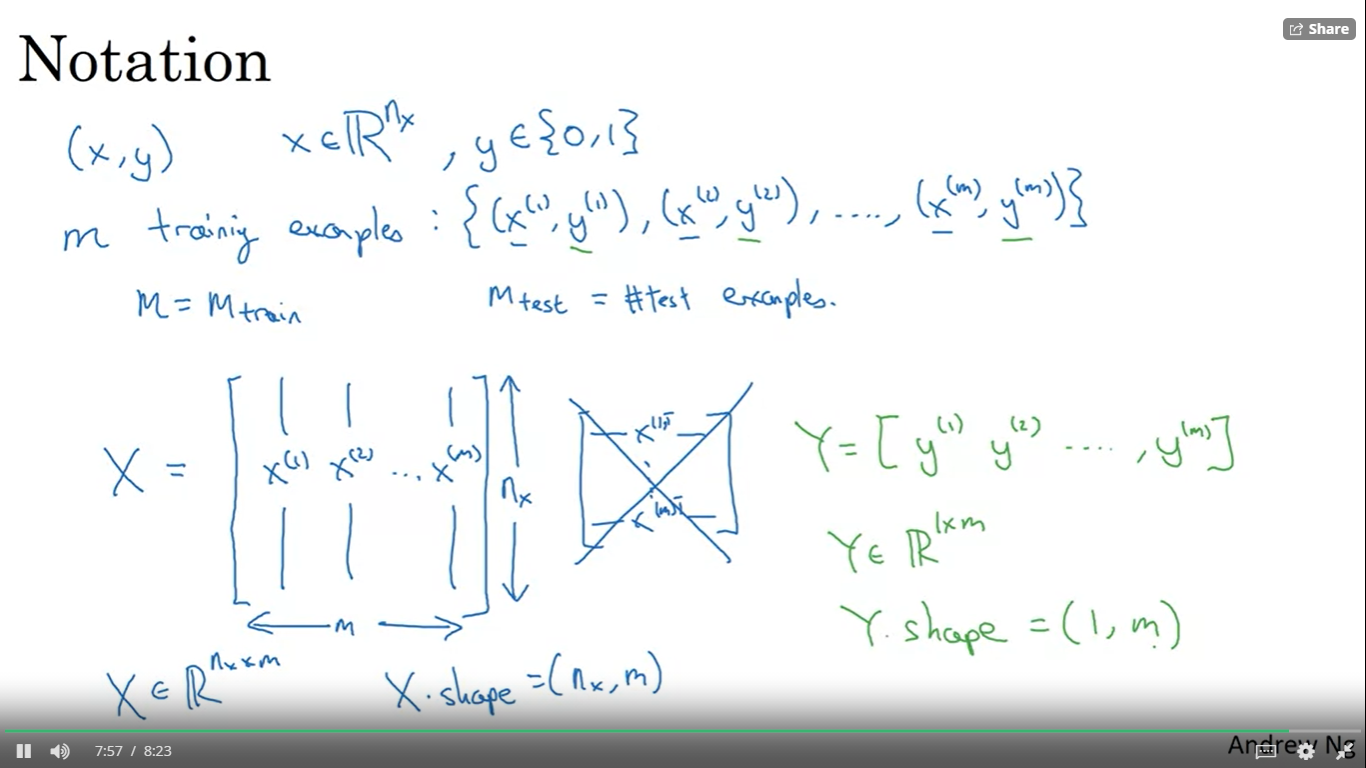 Share
Notation
(x, y)   x ∈ ℝ^{n_x}, y ∈ {0,1}
m training examples : {(x^{(1)}, y^{(1)}), (x^{(2)}, y^{(2)}), ...., (x^{(m)}, y^{(m)})}
M = M_{train}   M_{test} = #test examples.
X = [x^{(1)} x^{(2)} ... x^{(m)}] n_x
x^{(1)T}
x^{(m)T}
m
Y = [y^{(1)} y^{(2)} ...., y^{(m)}]
Y ∈ ℝ^{1×m}
Y.shape = (1, m)
X ∈ ℝ^{n_x×m}   X.shape = (n_x, m)
Andrew Ng
7:57 / 8:23